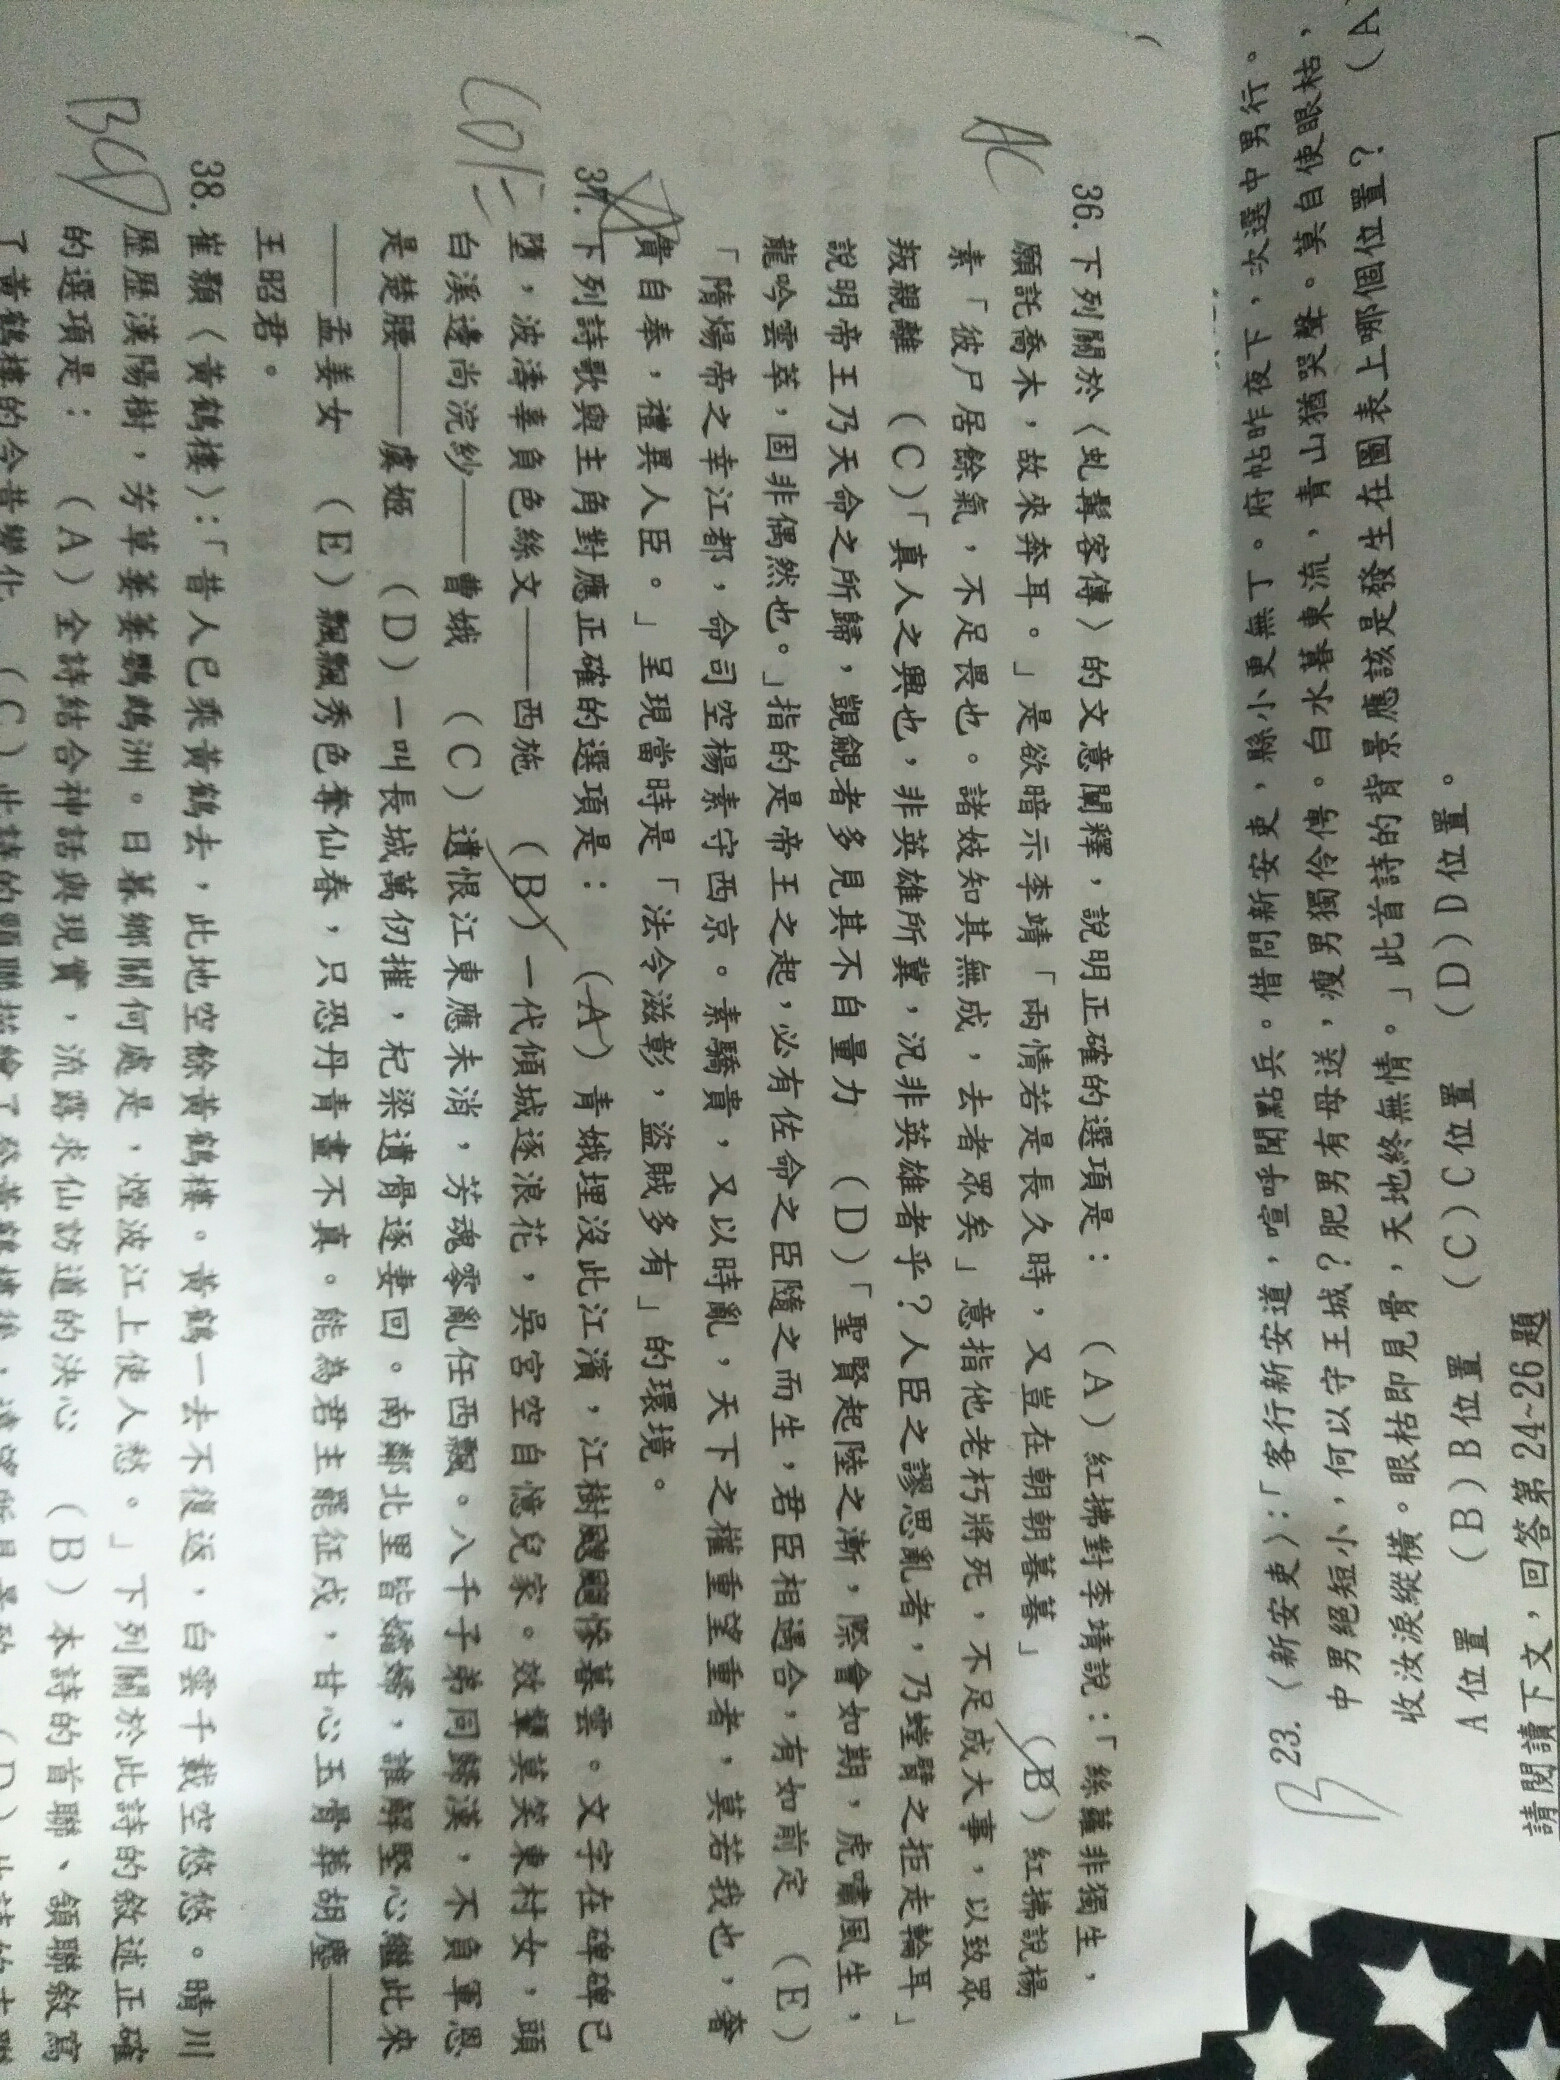 23.〈新安吏〉:「客行新安道，喧呼聞點兵。借問新安吏，縣小更無丁。府帖昨夜下，次選中男行。
中男絕短小，何以守王城？肥男有母送，瘦男獨伶俜。白水暮東流，青山猶哭聲。莫自使眼枯，
收汝淚縱橫。眼枯即見骨，天地終無情。」此首詩的背景應該是發生在圖表上哪個位置？ (A
A位置 (B)B位置 (C)C位置 (D)D位置。
請閱讀下文，回答第24~26題
B
36.下列關於〈虬髯客傳〉的文意闡釋，說明正確的選項是： (A)紅拂對李靖說：「絲蘿非獨生，
願託喬木，故來奔耳。」是欲暗示李靖「兩情若是長久時，又豈在朝朝暮暮」 (B)紅拂說楊
素「彼尸居餘氣，不足畏也。諸妓知其無成，去者眾矣」意指他老朽將死，不足成大事，以致眾
叛親離 (C)「真人之興也，非英雄所冀，況非英雄者乎？人臣之謬思亂者，乃螳臂之拒走輪耳」
說明帝王乃天命之所歸，覬覦者多見其不自量力 (D)「聖賢起陸之漸，際會如期，虎嘯風生，
龍吟雲萃，固非偶然也。」指的是帝王之起，必有佐命之臣隨之而生，君臣相遇合，有如前定 (E)
「隋煬帝之幸江都，命司空楊素守西京。素驕貴，又以時亂，天下之權重望重者，莫若我也，奢
貴自奉，禮異人臣。」呈現當時是「法令滋彰，盜賊多有」的環境。
AC
37.下列詩歌與主角對應正確的選項是： (A)青娥埋沒此江濱，江樹颼颼慘暮雲。文字在碑碑已
墮，波濤辜負色絲文——西施 (B)一代傾城逐浪花，吳宮空自憶兒家。效顰莫笑東村女，頭
白溪邊尚浣紗——曹娥 (C)遺恨江東應未消，芳魂零亂任西飄。八千子弟同歸漢，不負軍恩
是楚腰——虞姬 (D)一叫長城萬仞摧，杞梁遺骨逐妻回。南鄰北里皆孀婦，誰解堅心繼此來
——孟姜女 (E)飄飄秀色奪仙春，只恐丹青畫不真。能為君主罷征戍，甘心玉骨葬胡塵——
王昭君。
38.崔顥〈黃鶴樓〉:「昔人已乘黃鶴去，此地空餘黃鶴樓。黃鶴一去不復返，白雲千載空悠悠。晴川
歷歷漢陽樹，芳草萋萋鸚鵡洲。日暮鄉關何處是，煙波江上使人愁。」下列關於此詩的敘述正確
的選項是： (A)全詩結合神話與現實，流露求仙訪道的決心 (B)本詩的首聯、頷聯敘寫
了黃鶴樓的今昔變化 (C)此詩的頸聯描繪了
BCD